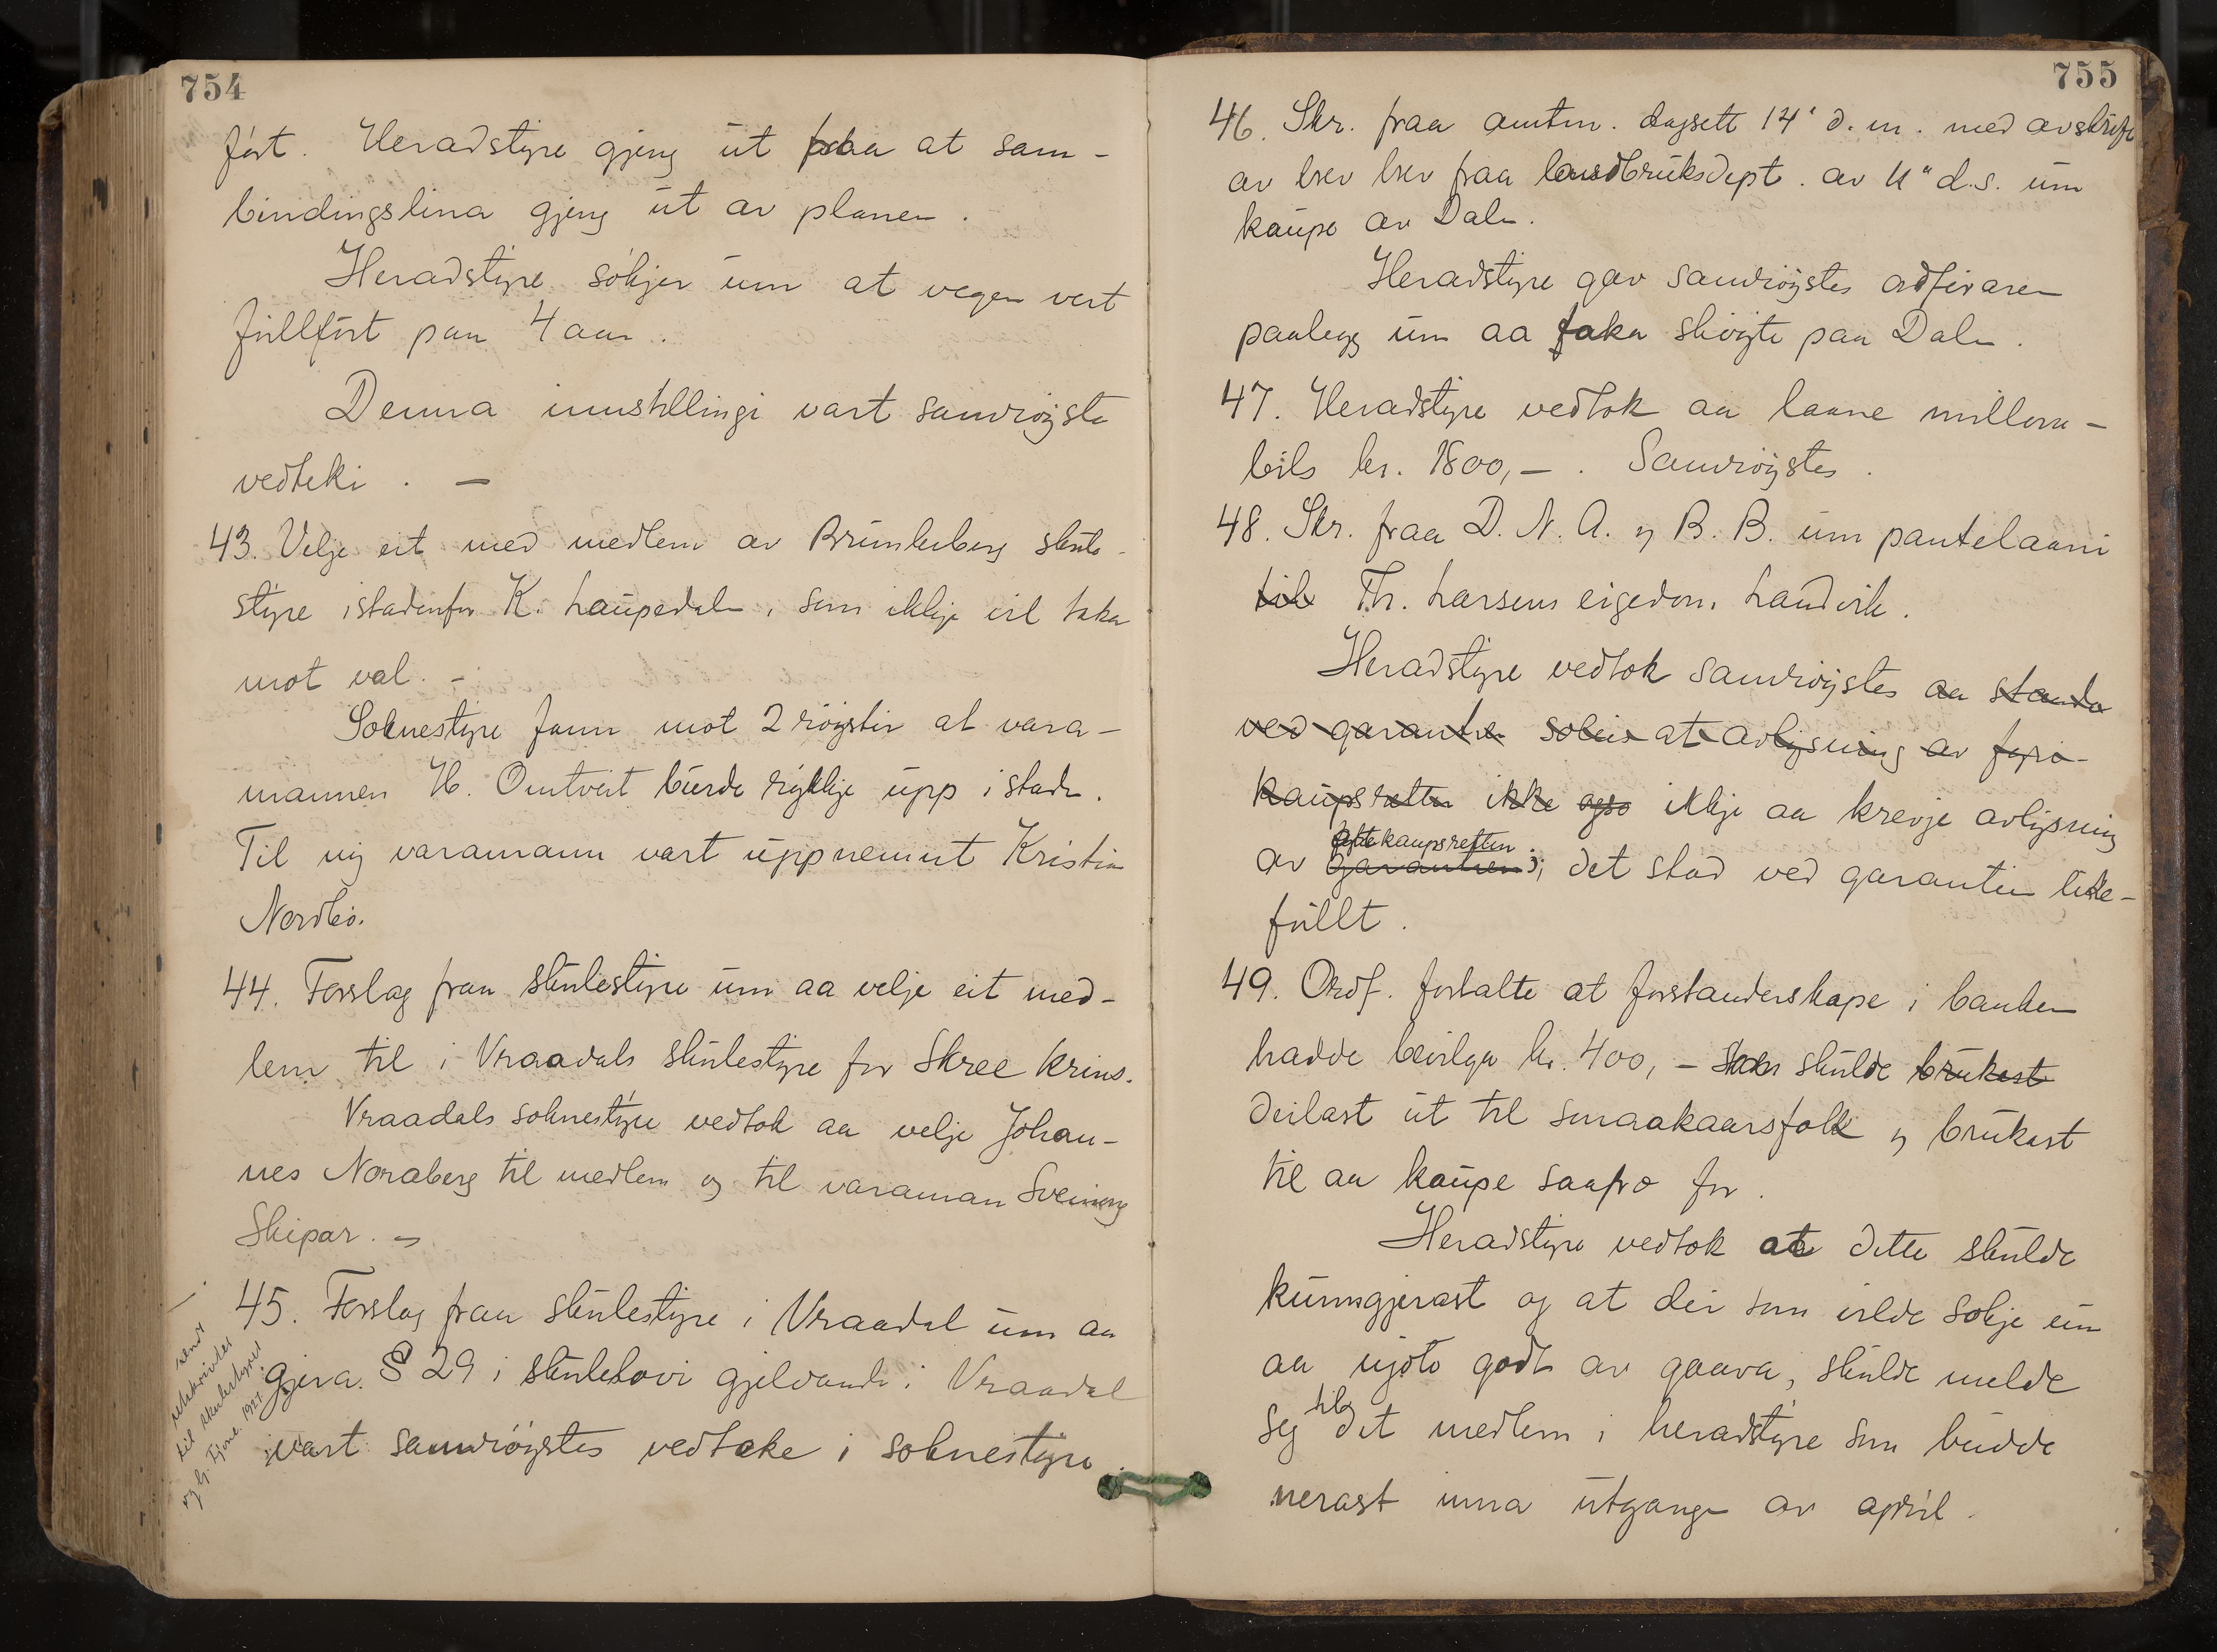 754
ført. Heradstyre gjeng ut fraa at sam-
bindingslina gjeng ut av planen.
Heradstyre søkjer um at vegen vert
fullført paa 4 aar.
Denna innstillingi vart samrøyste
vedteki. —
43. Velje eit med medlem av Brunkeberg skule-
styre istadenfor K. Laupedalen, som ikkje vil taka
mot val. -
Soknestyre fann mot 2 røyster at vara-
mannen H. Omtveit burde rykkje upp i staden.
Til ny varamann vart uppnemnt Kristian
Nordbø.
44. Forslag fraa skulestyre um aa velje eit med-
lem til i Vraadals skulestyre for Skree krins.
Vraadals soknestyre vedtok aa velje Johan-
nes Noraberg til medlem og til varaman Sveinung
Skipar. -
45. Forslag fraa skulestyre i Vraadal um aa
gjera § 29 i skulelovi gjeldande i Vraadal
vart samrøystes vedteke i soknestyre.
send
utskrifter
til skulestyret
1921.
755
46. Skr. fraa amtm. dagsett 14' d. m. med avskrift
av brev brev fraa landbruksdept. av 11" d.s. um
kaupe av Dalen.
Heradstyre gav samrøystes ordføraren
paalegg um aa taka skøyte paa Dalen.
47. Heradstyre vedtok aa laane millom-
bils kr. 1800,- . Samrøystes.
48. Skr. fraa D. N. A. og B. B. um pantelaani
til Th. Larsens eigedom Landvik.
Heradstyre vedtok samrøystes aa standa
ved garantien soleis at avlysning av fyrì-
kaupsretten ikke ogso ikkje aa krevje avlysning
atterkaupsretten
av garantien; det stod ved garantien like-
fullt.
49. Ordf. fortalte at forstanderskape i banken
hadde bevilga kr. 400,- som skulde brukast
deilast ut til smaakaarsfolk og brukast
til aa kaupe saafrø for.
Heradstyre vedtok at dette skulde
kunngjerast og at dei som vilde søkje um
aa njote godt av gaava, skulde melde
til
seg det medlem i heradstyre som budde
nerast inna utgangen av april.